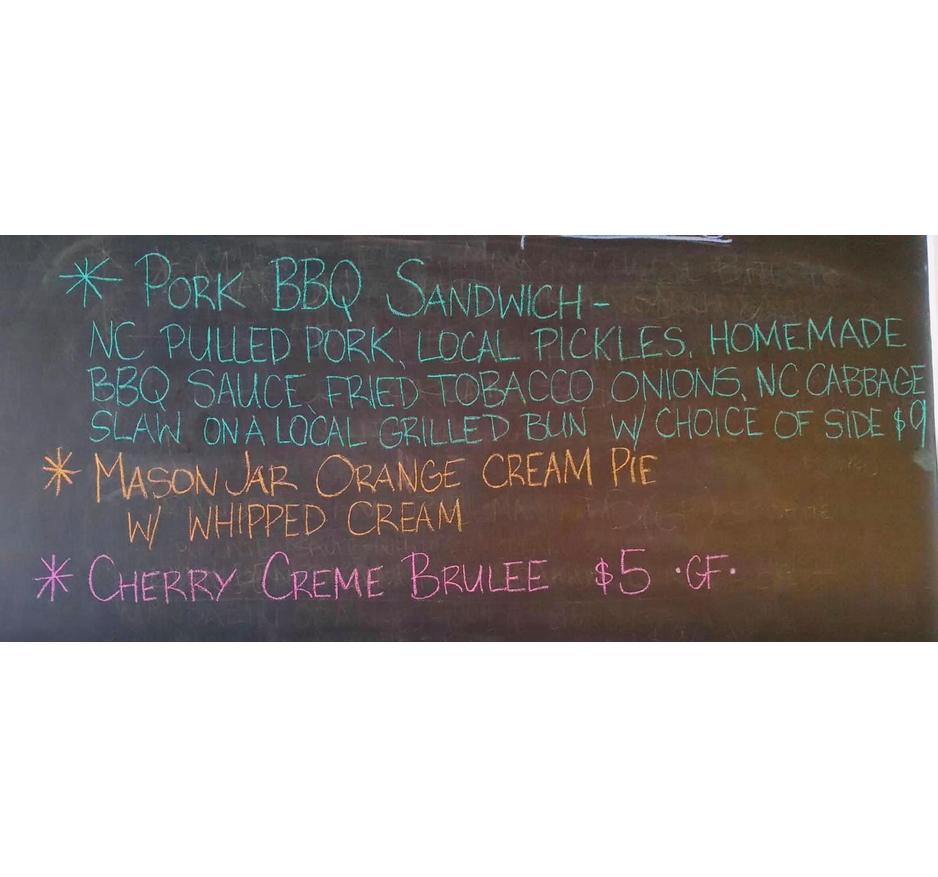 * PORK BBQ SANDWICH -
NC PULLED PORK, LOCAL PICKLES, HOMEMADE
BBQ SAUCE, FRIED TOBACCO ONIONS, NC CABBAGE
SLAW ON A LOCAL GRILLED BUN W/ CHOICE OF SIDE $9
* MASON JAR ORANGE CREAM PIE
W/ WHIPPED CREAM
* CHERRY CREME BRULEE $5 ·GF·